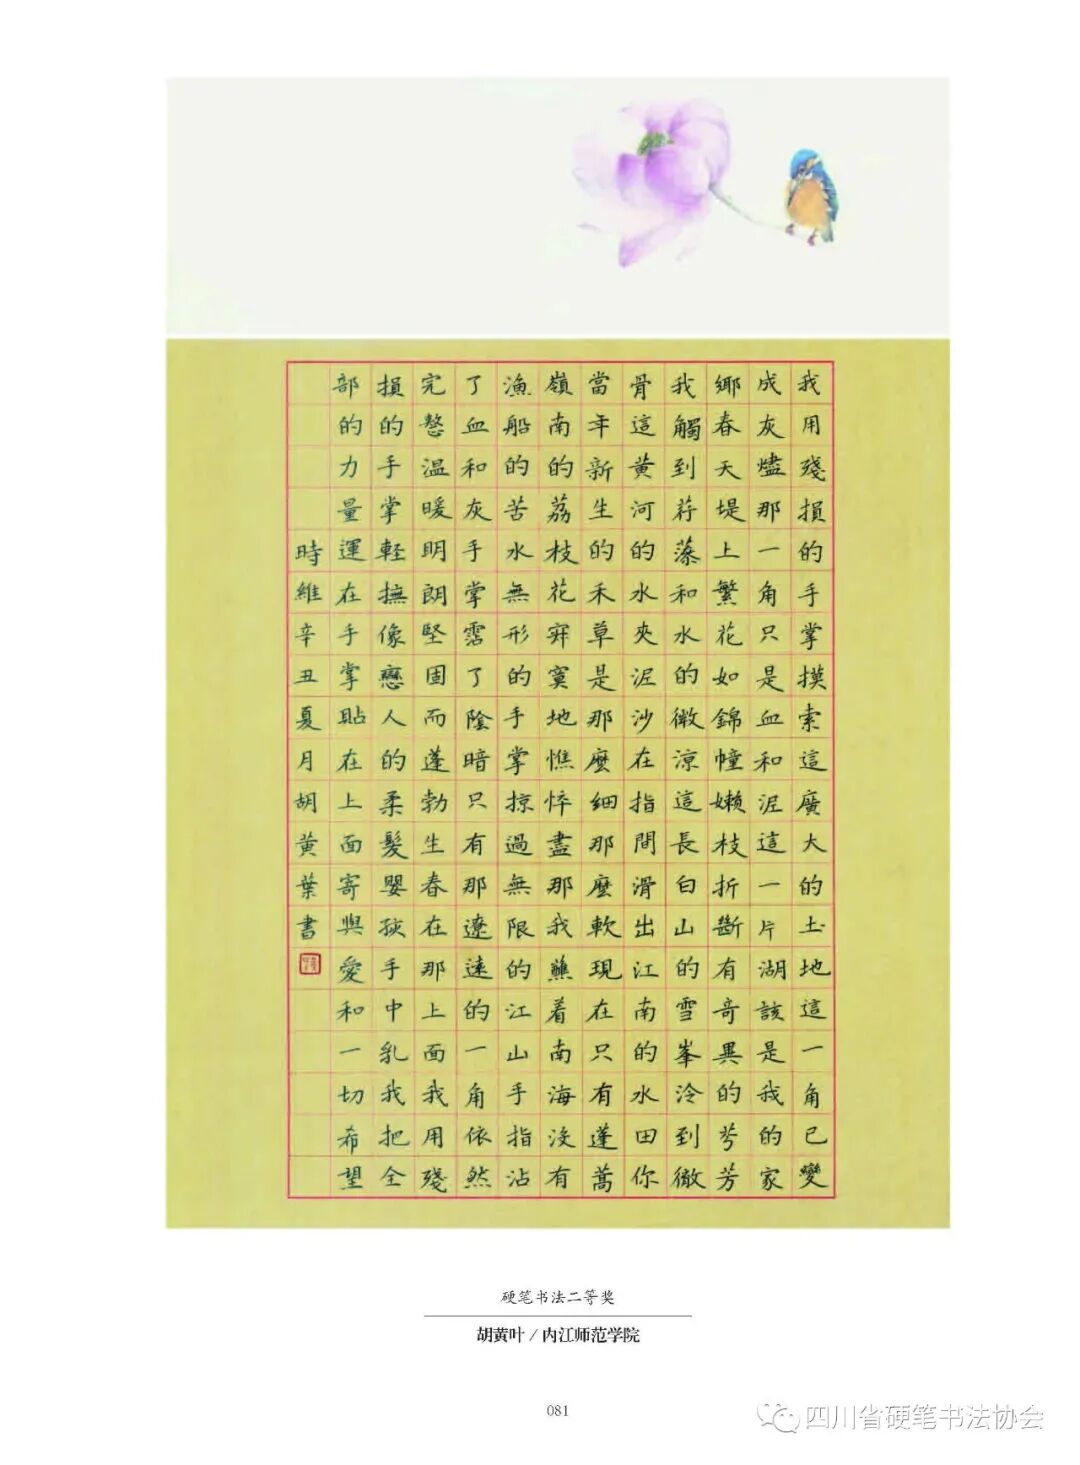 我用殘損的手掌摸索這廣大的土地這一角已變
成灰燼那一角只是血和泥這一片湖該是我的家
鄉春天堤上繁花如錦幛嫩枝折斷有奇異的芬芳
我觸到荇藻和水的微涼這長白山的雪峯冷到徹
骨這黃河的水夾泥沙在指間滑出江南的水田你
當年新生的禾草是那麼細那麼軟現在只有蓬蒿
嶺南的荔枝花寂寞地憔悴盡那我蘸着南海沒有
漁船的苦水無形的手掌掠過無限的江山手指沾
了血和灰手掌霑了陰暗只有那遼遠的一角依然
完整溫暖明朗堅固而蓬勃生春在那上面我用殘
損的手掌輕撫像戀人的柔髮嬰孩手中乳我把全
部的力量運在手掌貼在上面寄與愛和一切希望
時維辛丑夏月胡黃葉書
硬笔书法二等奖
胡黄叶 / 内江师范学院
081
四川省硬笔书法协会